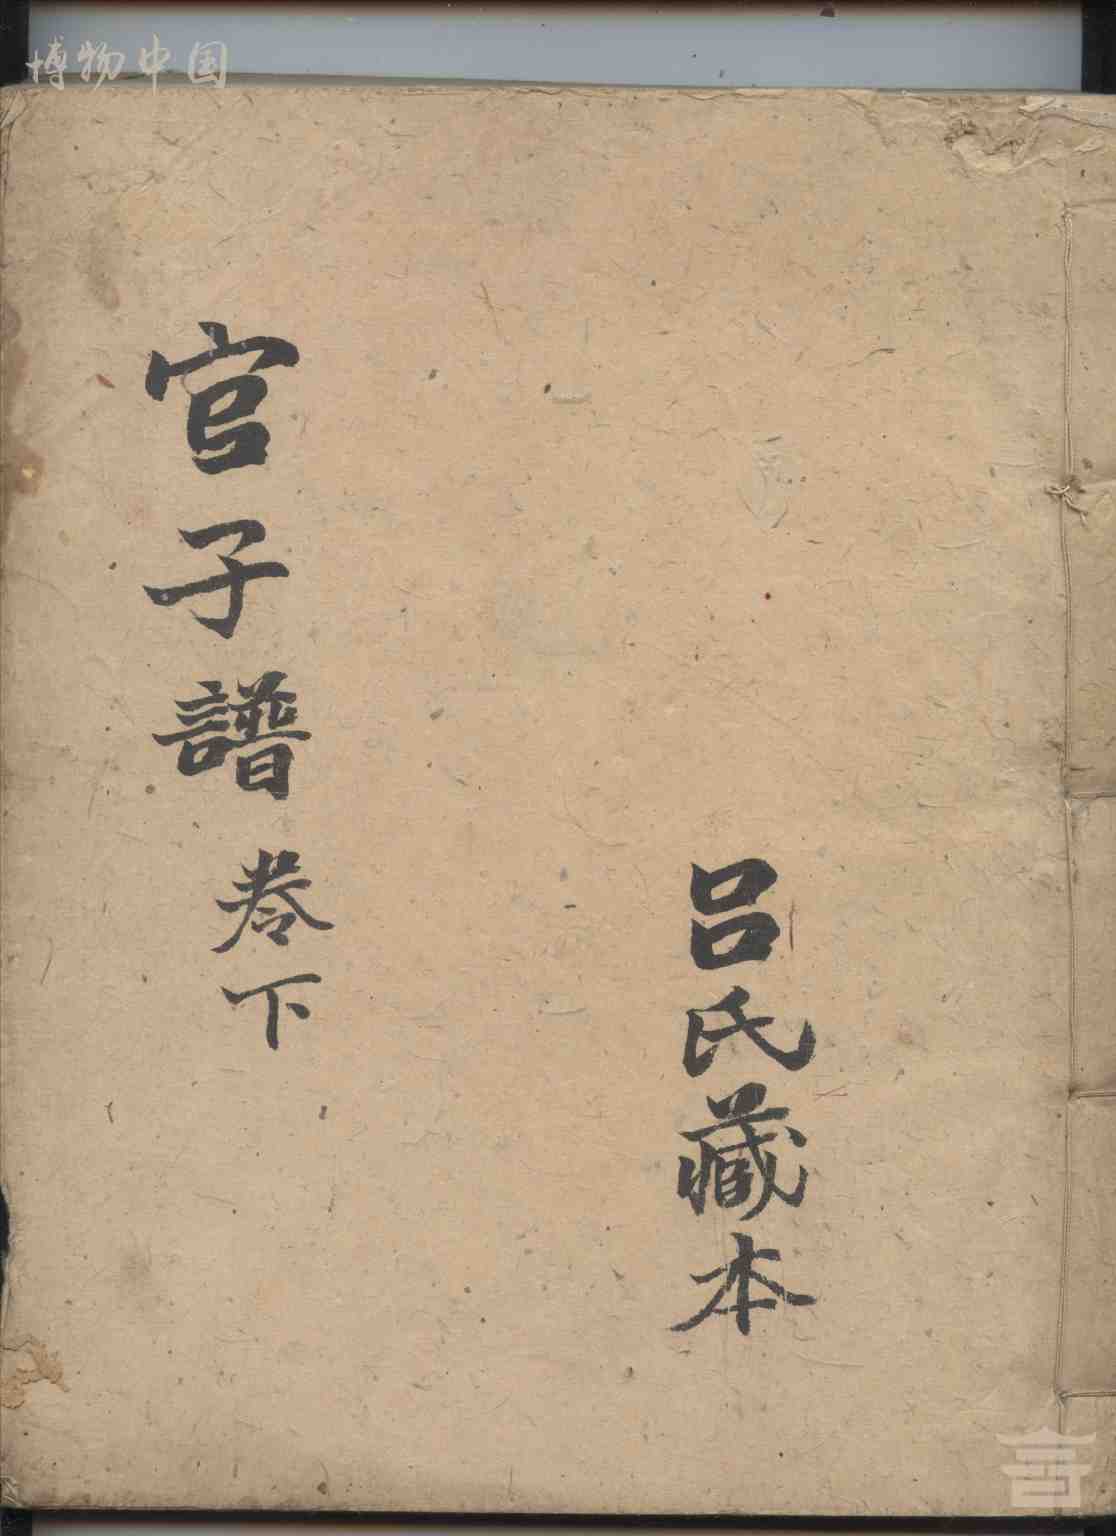 博物中国
吕氏藏本
官子譜 卷下